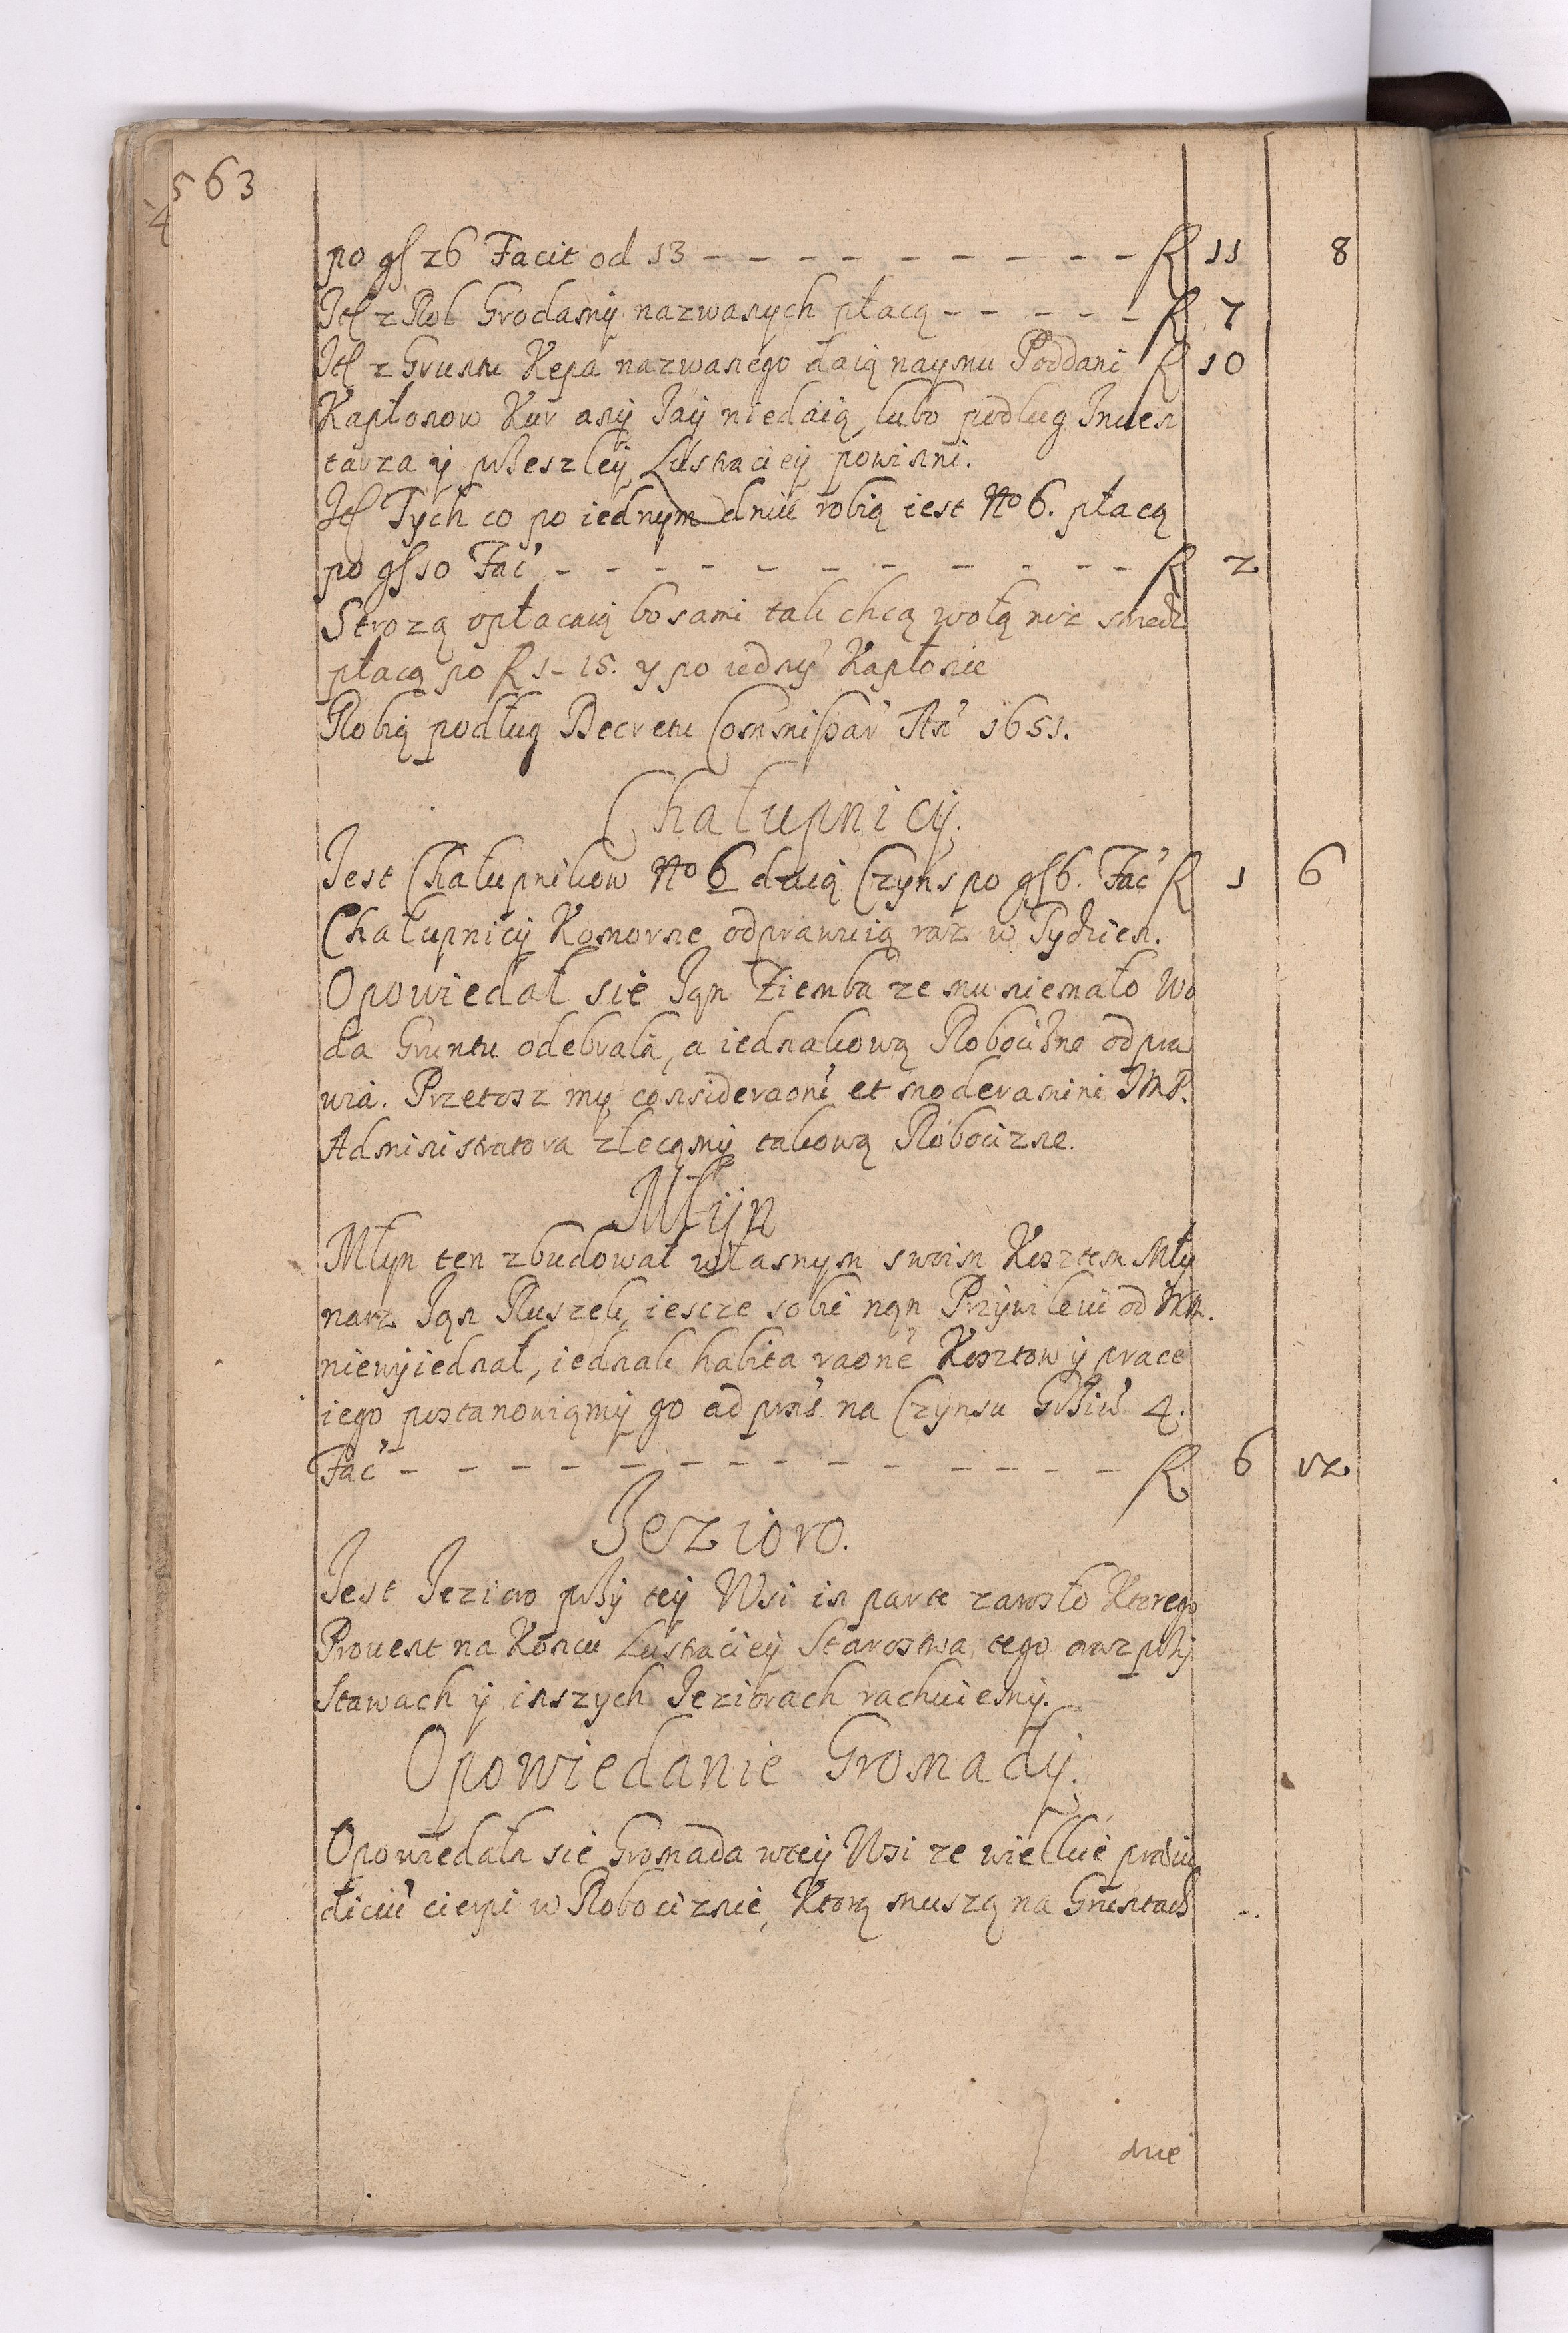 563
4
po gſ 26 Facit od 13 – – – – – – – – – R 11 8
Itſ z Rol Grodamij nazwanych płacą – – – – – R 7
Itſ z Gruntu Kępa nazwanego daią naymu Poddani R 10
Kapłonow Kur anij Jaij niedaią, lubo podług Inuen
tarza ÿ przeszleÿ Lustraciey powinni.
Itſ Tych co po iednym dniu robią iest No 6. płacą
po gſ 10 Fać – – – – – – – – – – – R 2
Strozą opłacaią bo sami tak chcą wolą niz strzedz
płacą po R 1 – 15. y po iedny Kapłonie
Robią podług Decretu Commissar An 1651.
Chałupnicÿ.
Jest Chałupnikow No 6 daią Czyns po gſ 6. Fać R 1 6
Chałupnicÿ Komorne odprawuią raz w Tydzien.
Opowiedał się Jan Ziemba ze mu niemało Wo
da Gruntu odebrała, a iednakową Robociznę odpra
wia. Przetosz my consideraoni et moderamini JMP.
Administratora zlecamÿ takową Robociznę.
Młÿn
Młyn ten zbudował własnym swoim Kosztem Mły
narz Jan Ruszek, iescze sobie nan Przywileiu od JKM.
niewÿiednał, iednak habita raone Kosztow ÿ prace
iego postanowiamÿ go ad prns na Czynsu Grziw 4.
Fać – – – – – – – – – – – – – R 6 12
Jezioro.
Jest Jezioro przÿ teÿ Wsi in parte zarosło Ktorego
Prouent na Koncu Lustracieÿ Starostwa tego oraz przÿ
Stawach ÿ inszych Jeziorach rachuiemÿ.
Opowiedanie Gromadÿ.
Opowiedała się Gromada wteÿ Wsi ze wielkie praeiu
diciu cierpi w Robociznie, Ktorą muszą na Gruntach
dwe